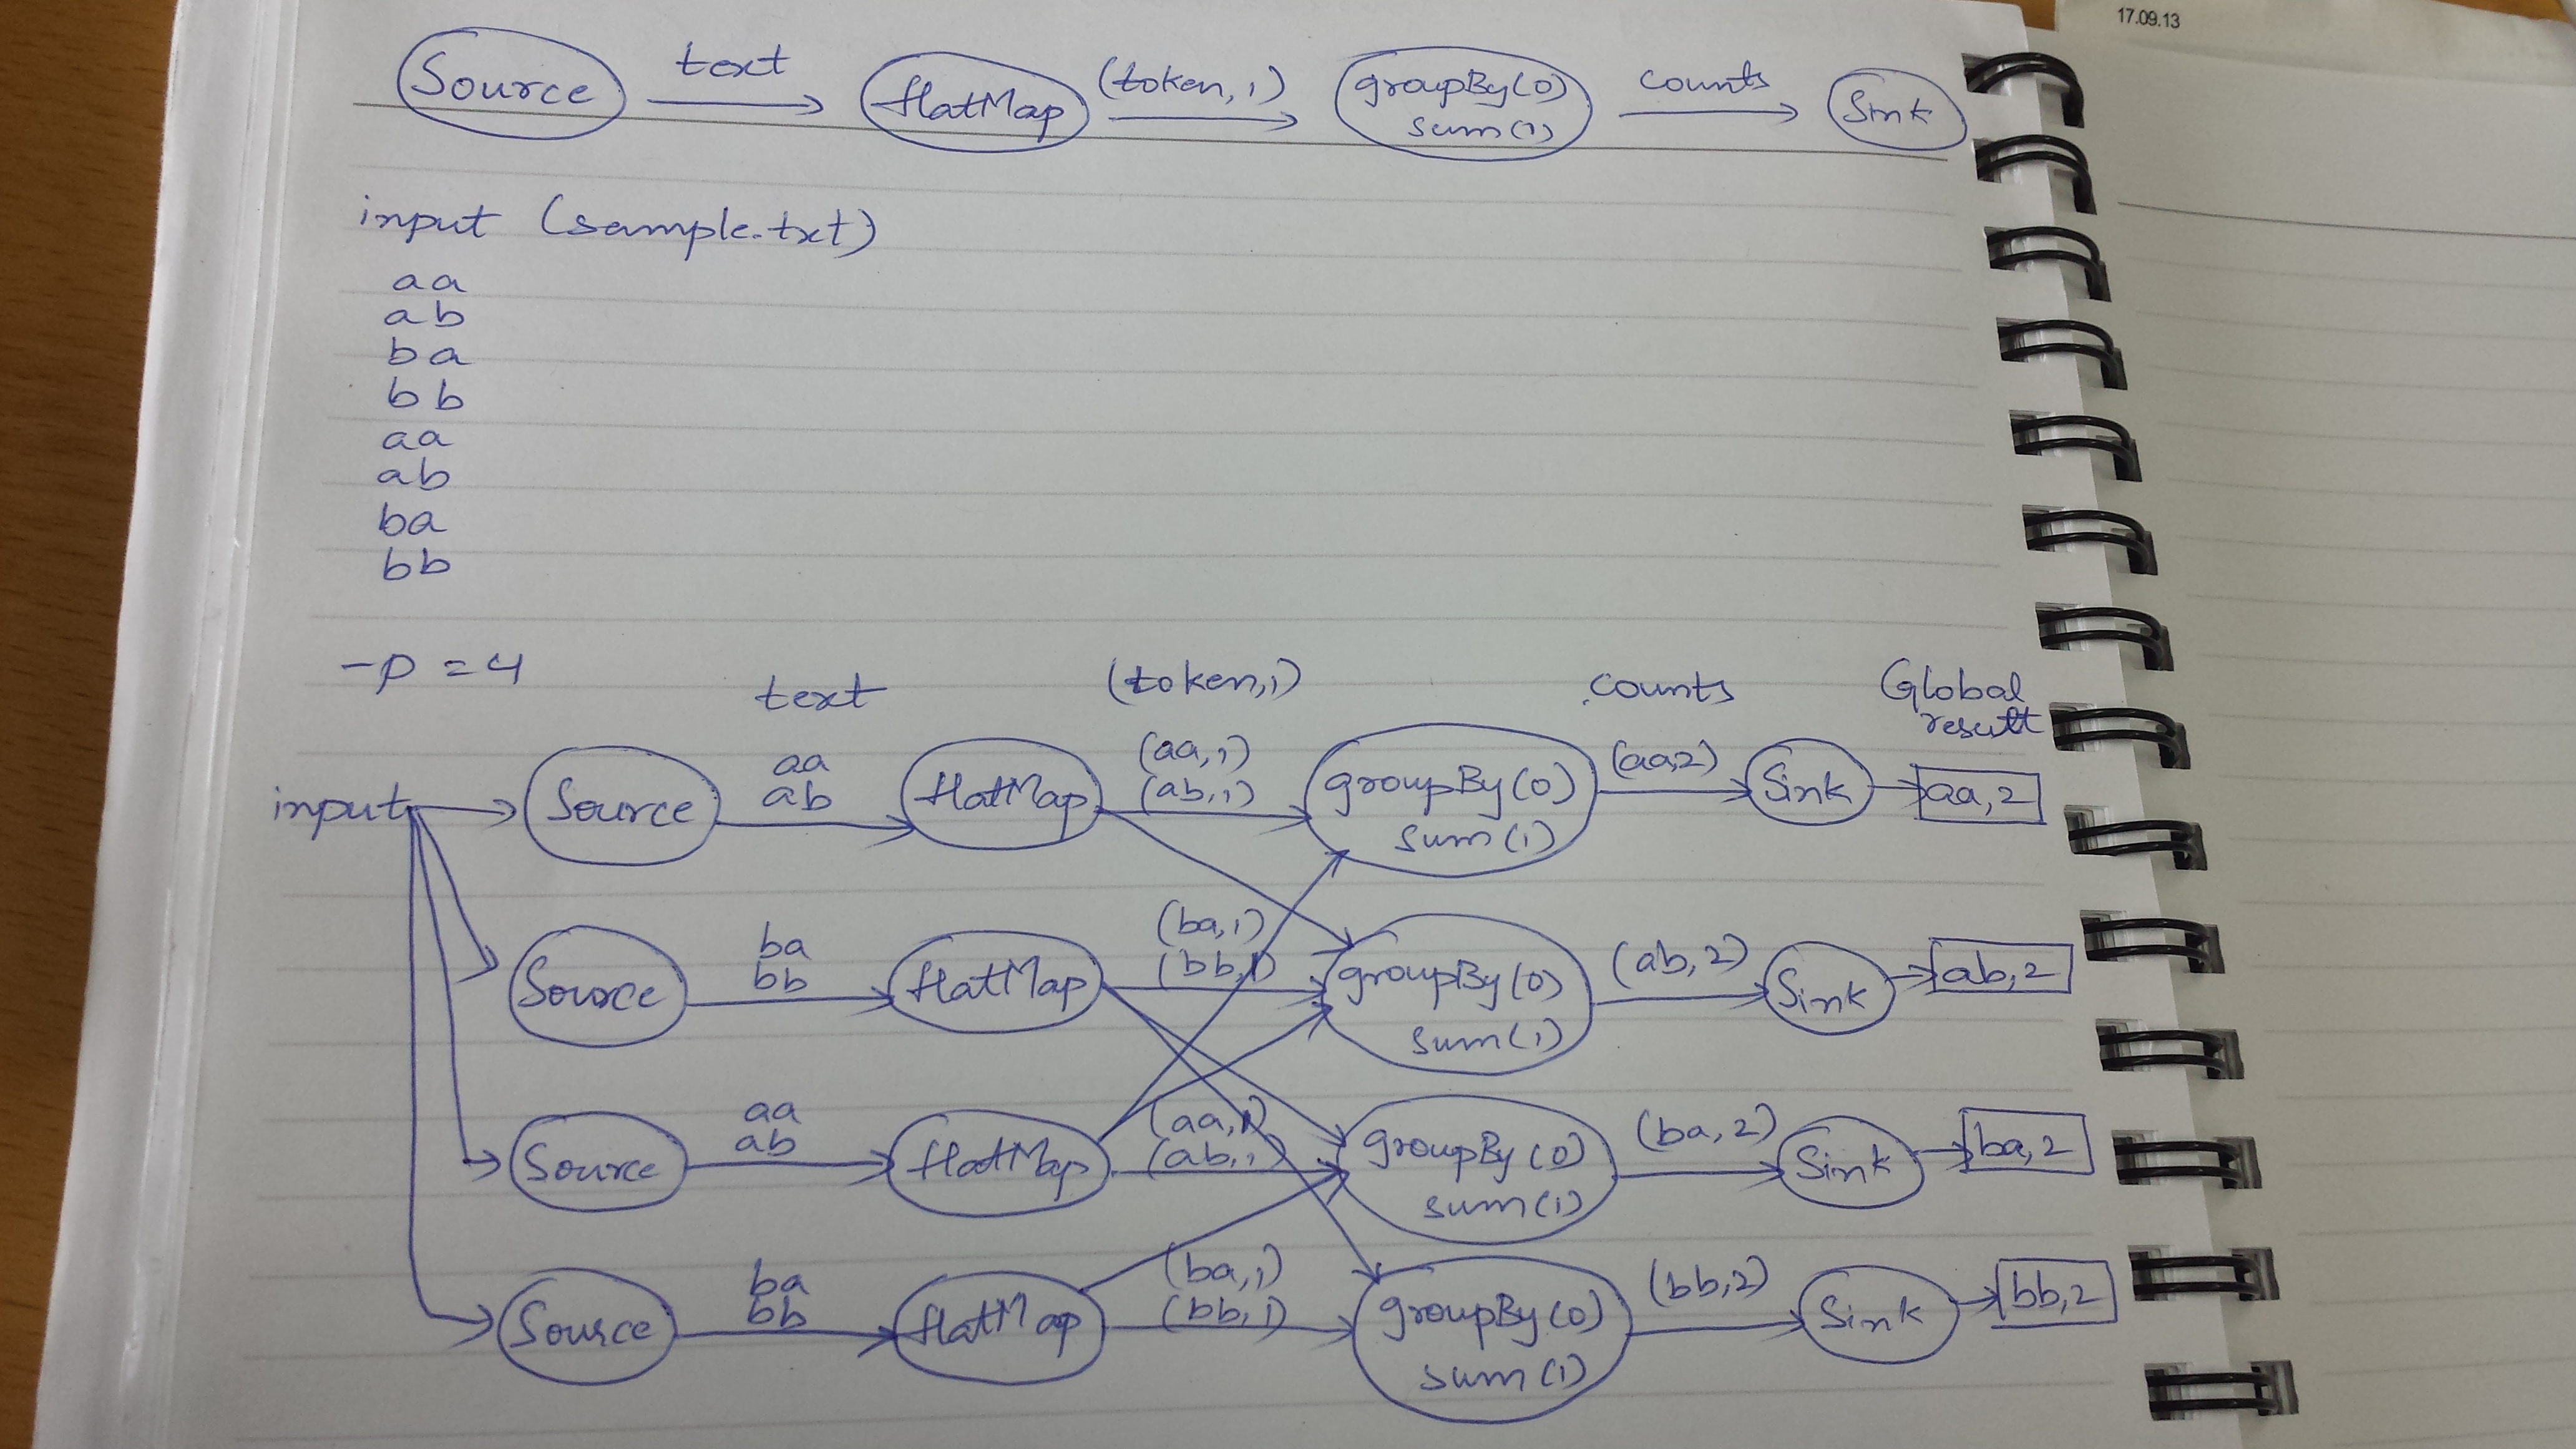 17.09.13
Source text flatMap (token,1) groupBy(0) counts Sink
sum(1)
input (sample.txt)
aa
ab
ba
bb
aa
ab
ba
bb
-p = 4
text (token,1) counts Global
result
aa (aa,1)
input Source ab flatMap (ab,1) groupBy(0) (aa,2) Sink aa,2
sum(1)
ba (ba,1)
Source bb flatMap (bb,1) groupBy(0) (ab,2) Sink ab,2
sum(1)
aa (aa,1)
Source ab flatMap (ab,1) groupBy(0) (ba,2) Sink ba,2
sum(1)
ba (ba,1)
Source bb flatMap (bb,1) groupBy(0) (bb,2) Sink bb,2
sum(1)